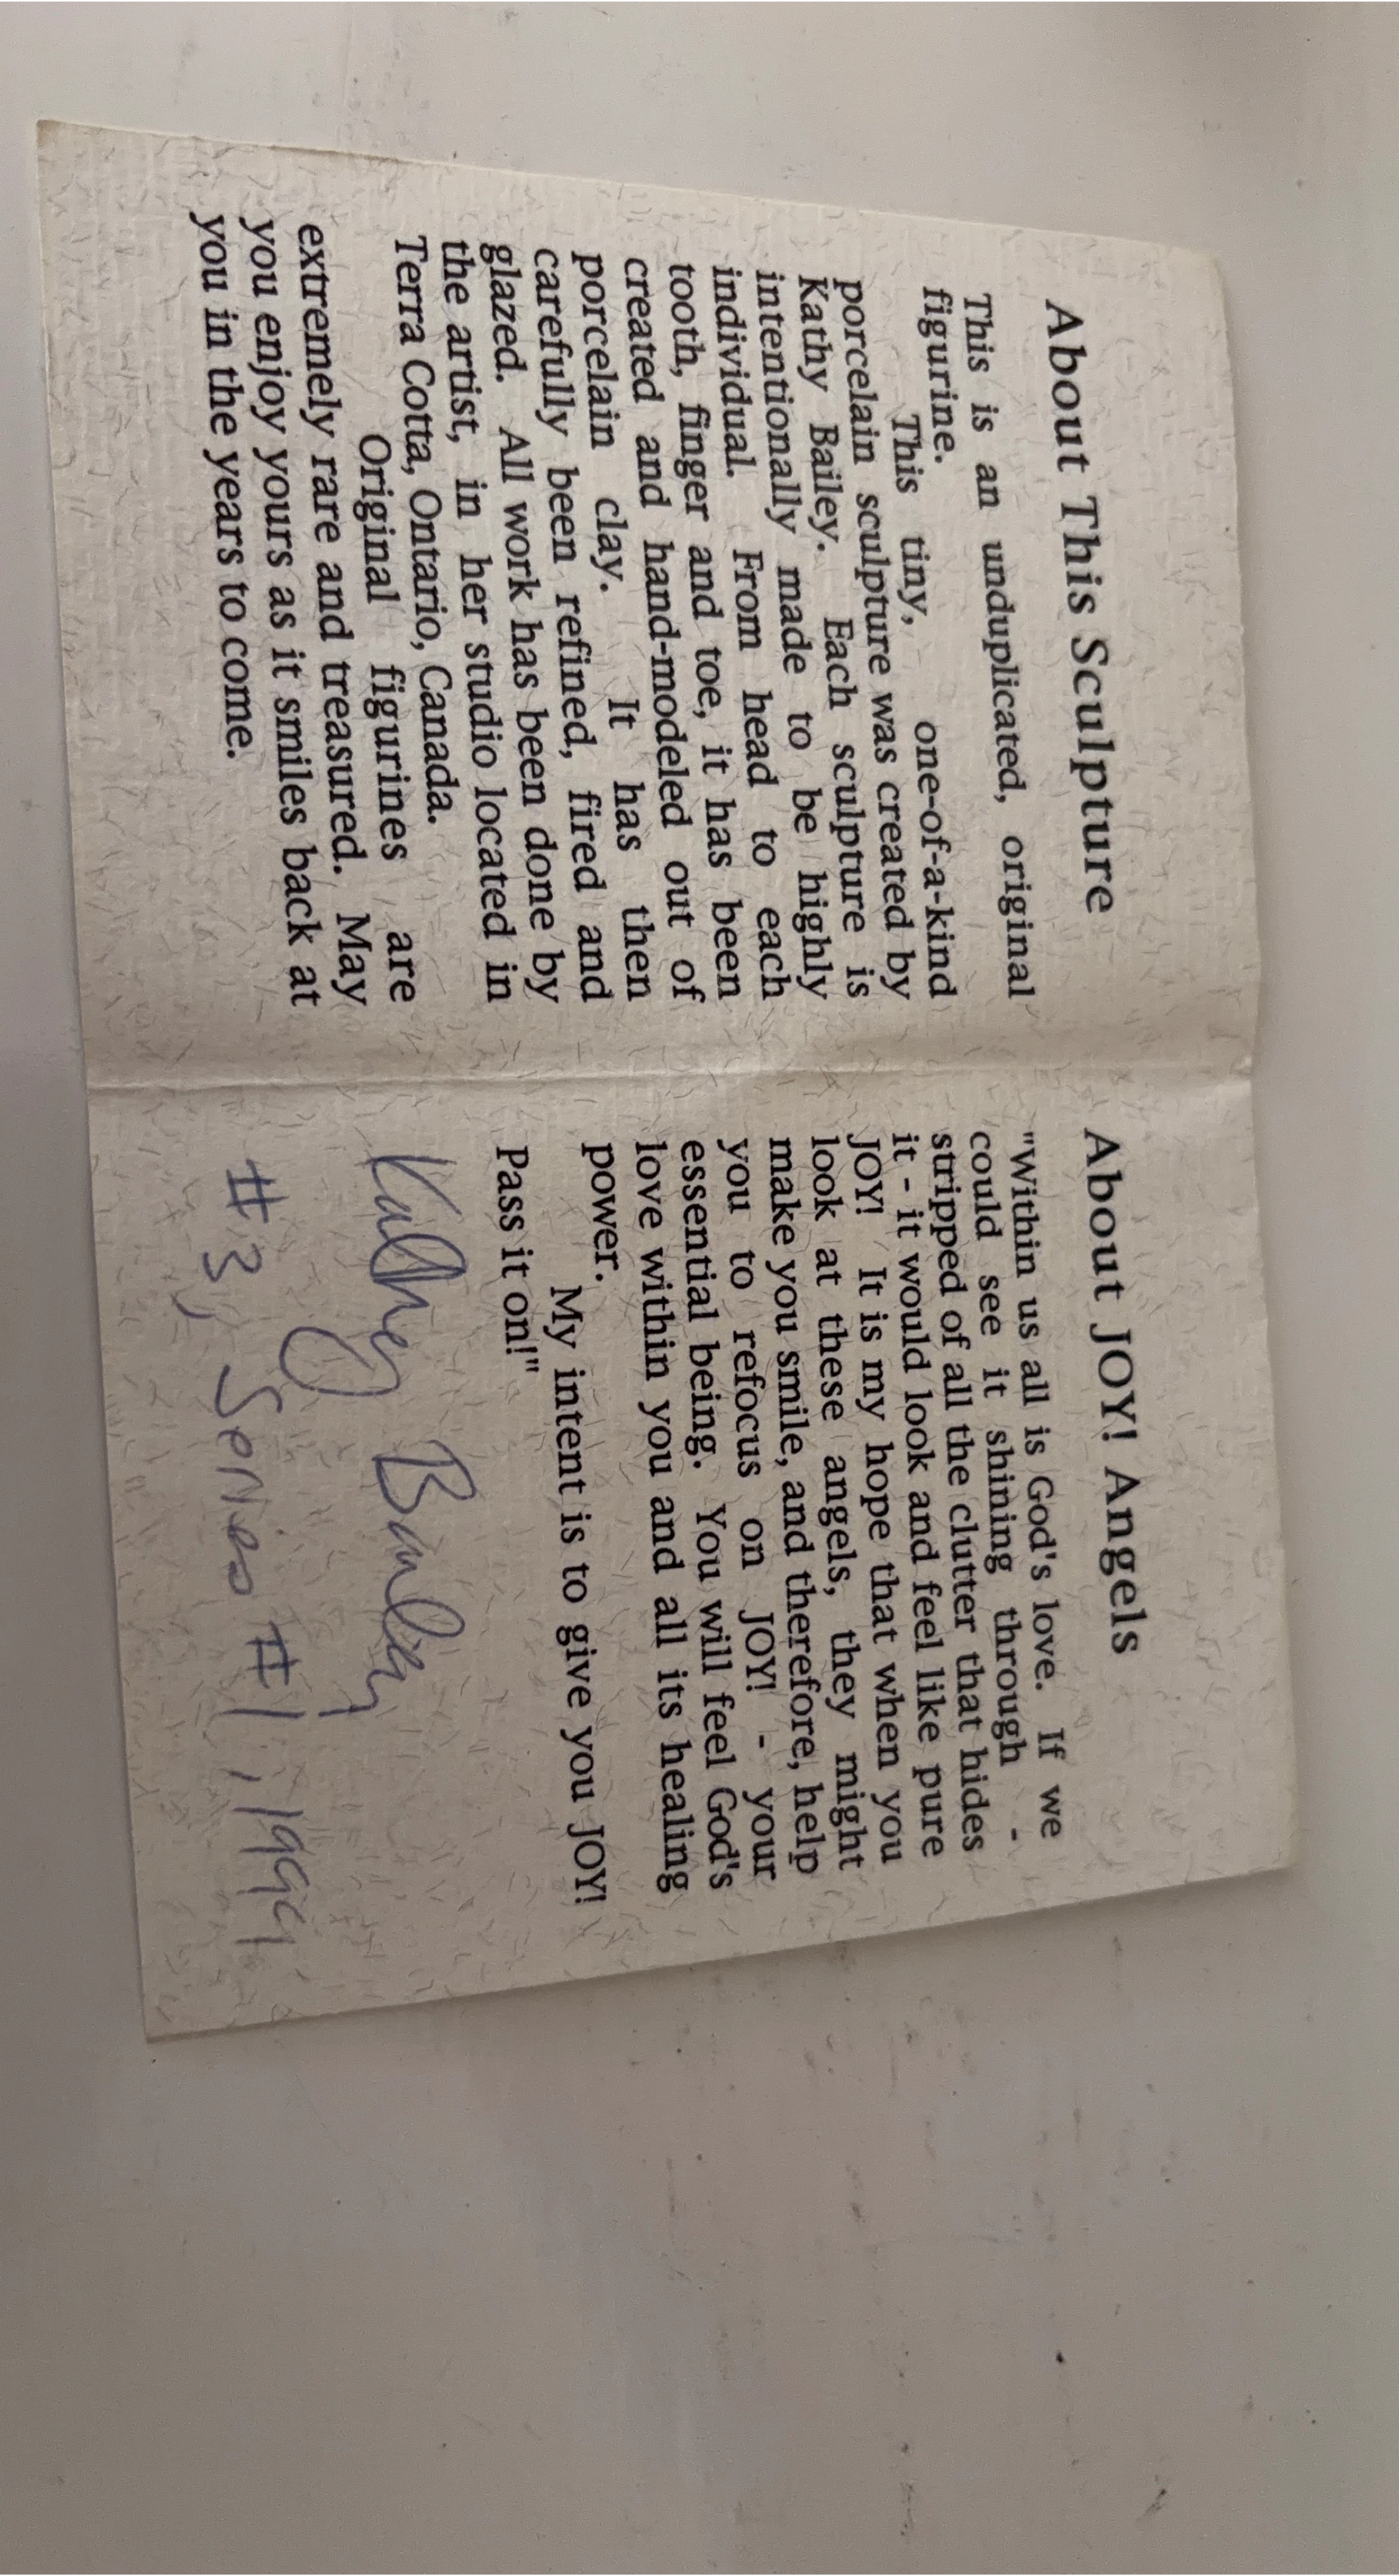 About This Sculpture
This is an unduplicated, original
figurine.
This tiny, one-of-a-kind
porcelain sculpture was created by
Kathy Bailey. Each sculpture is
intentionally made to be highly
individual. From head to each
tooth, finger and toe, it has been
created and hand-modeled out of
porcelain clay. It has then
carefully been refined, fired and
glazed. All work has been done by
the artist, in her studio located in
Terra Cotta, Ontario, Canada.
Original figurines are
extremely rare and treasured. May
you enjoy yours as it smiles back at
you in the years to come.
About JOY! Angels
"Within us all is God's love. If we
could see it shining through -
stripped of all the clutter that hides
it - it would look and feel like pure
JOY! It is my hope that when you
look at these angels, they might
make you smile, and therefore, help
you to refocus on JOY! - your
essential being. You will feel God's
love within you and all its healing
power.
My intent is to give you JOY!
Pass it on!"
Kathy Bailey
#3, Series #1, 1991